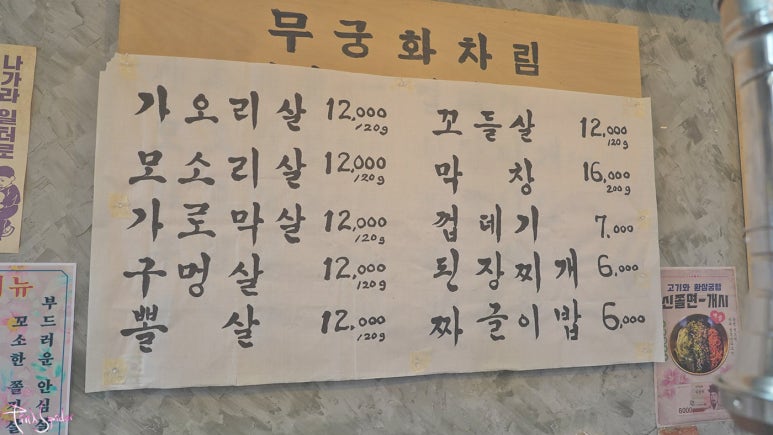 무궁화차림
가오리살 12,000
/120g
모소리살 12,000
/120g
가로막살 12,000
/120g
구멍살 12,000
/120g
뽈살 12,000
/120g
꼬들살 12,000
120g
막창 16,000
200g
껍데기 7,000
된장찌개 6,000
짜글이밥 6,000
나가라 일터로
메뉴
부드러운 안심살
꼬소한 쫄깃살
고기와 환상궁합
신쫄면-개시
6000